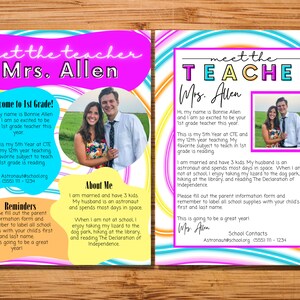 meet the teacher
Mrs. Allen
Welcome to 1st Grade!
my name is Bonnie Allen
I am so excited to be
1st grade teacher this
year.
This is my 5th year at CTE
my 12th year teaching.
favorite subject to teach
is 1st grade is reading.
Astronaut@school.org
(555) 111 - 1234
Reminders
fill out the parent
information form and
remember to label all school
supplies with your child's first
and last name.
is going to be a great
year!
About Me
I am married and have 3 kids.
My husband is an astronaut
and spends most days in space.
When I am not at school, I
enjoy taking my lizard to the
dog park, hiking at the library,
and reading The Declaration of
Independence.
meet the
TEACHE
Mrs. Allen
Hi, my name is Bonnie Allen
and I am so excited to be your
1st grade teacher this year.
This is my 5th year at CTE and
my 12th year teaching. My
favorite subject to teach in 1st
grade is reading.
I am married and have 3 kids. My husband is an
astronaut and spends most days in space. When I
am not at school, I enjoy taking my lizard to the dog
park, hiking at the library, and reading The
Declaration of Independence.
Please fill out the parent information form and
remember to label all school supplies with your child's
first and last name.
This is going to be a great year!
Mrs. Allen
School Contacts
Astronaut@school.org (555) 111 - 1234